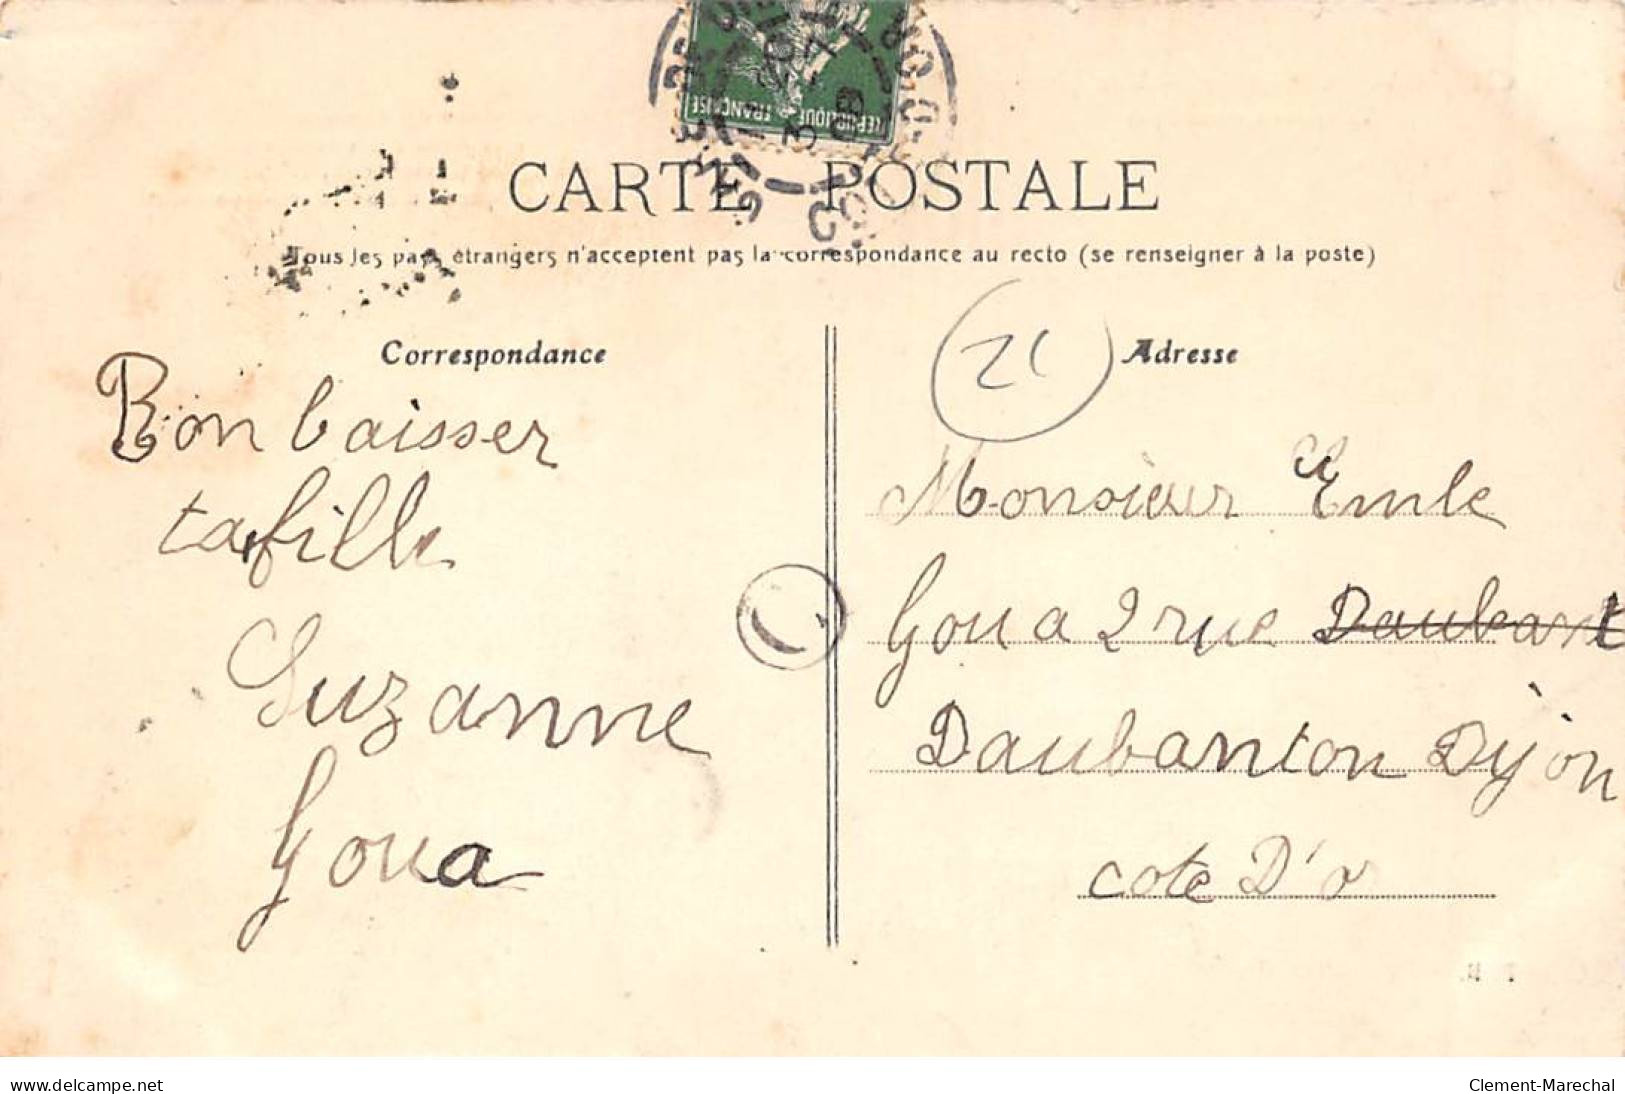 REPUBLIQUE FRANÇAISE
CARTE POSTALE
Tous les pays étrangers n'acceptent pas la correspondance au recto (se renseigner à la poste)
Correspondance
Bon baisser
ta fille
Suzanne
Goua
21
Adresse
Monsieur Emle
Goua 2 rue Daubant
Daubanton Dijon
cote D'o
www.delcampe.net
Clement-Marechal